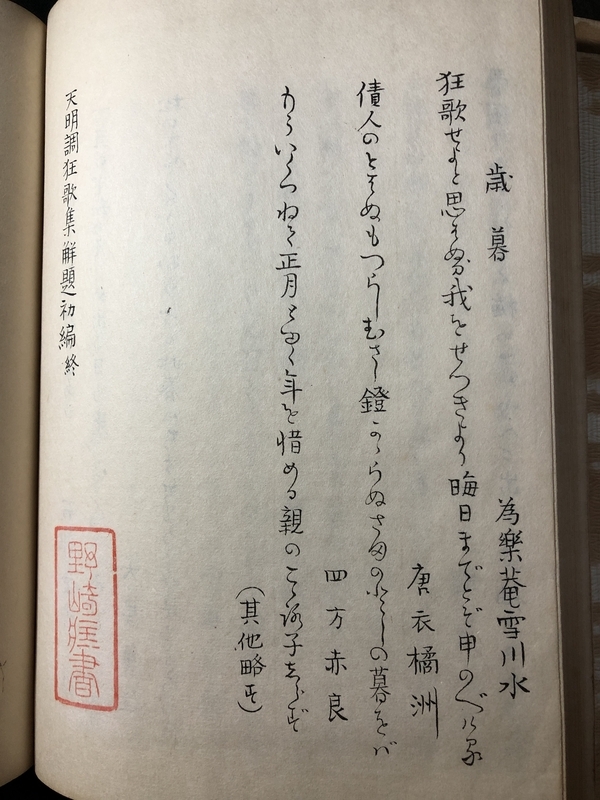 歳暮
為樂菴雪川水
狂歌せよと思はぬ我をせつきより晦日までとぞ申のべける
唐衣橘洲
債人のとはぬもつらしむさし鐙かゝらぬさきのとしの暮をば
四方赤良
いくつねて正月とゆく年を惜める親のこゝろ子しらず
（其他略す）
天明調狂歌集解題初編終
野崎 書